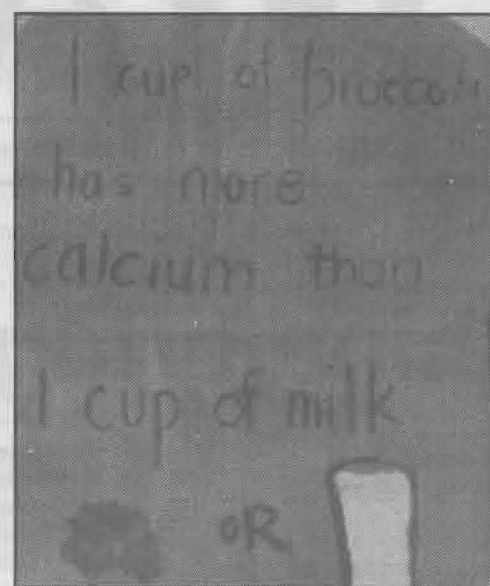 1 cup of broccoli
has more
calcium than
1 cup of milk
OR